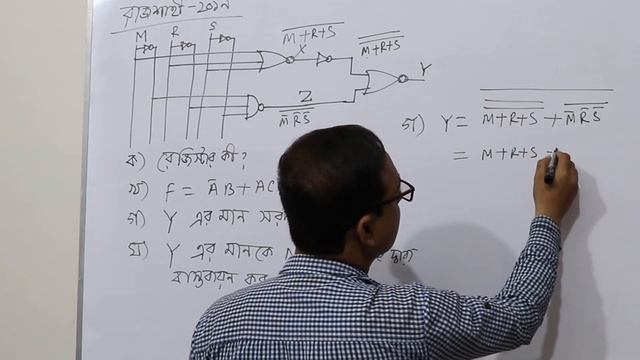 রাজশাহী - ২০১৭
M R S
M+R+S
X
M+R+S
Y
Z
M̅ R̅ S̅
ক) রেজিস্টার কী?
খ) F = A̅B + AC
গ) Y এর মান সরল
ঘ) Y এর মানকে N দ্বারা
বাস্তবায়ন কর
গ) Y = M+R+S + M̅ R̅ S̅
= M+R+S +